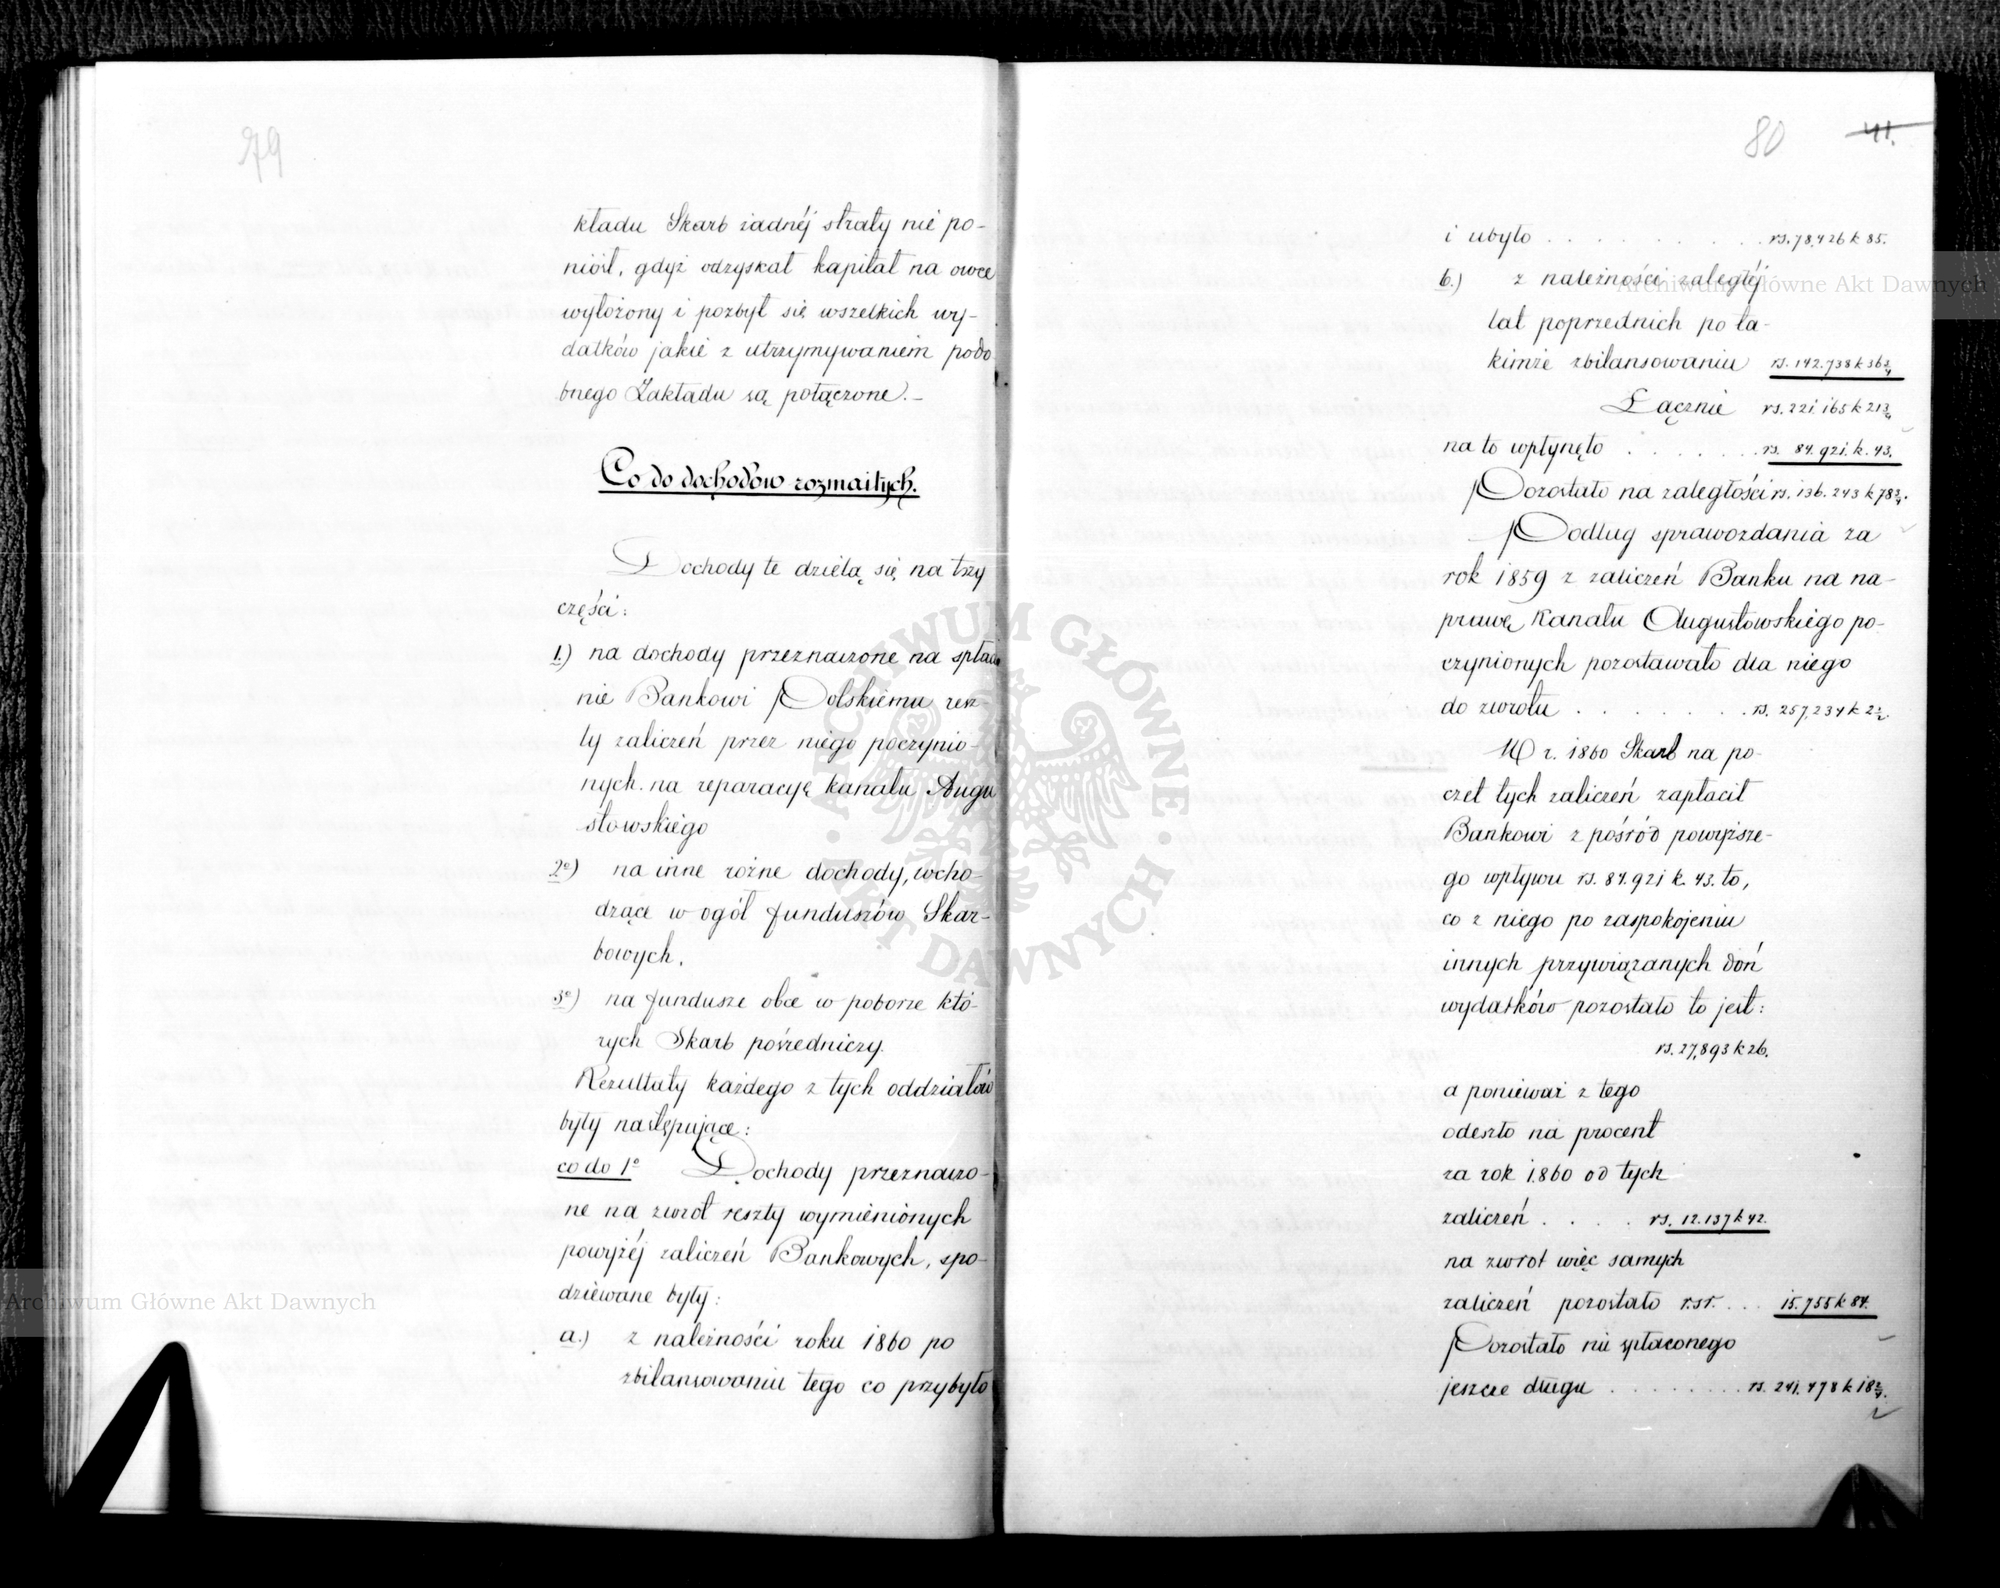 79
kładu Skarb żadnéj straty nie po-
niósł, gdyż odzyskał kapitał na owce
wyłożony i pozbył się wszelkich wy-
datków jakie z utrzymywaniem podo-
bnego Zakładu są połączone.-
Co do dochodów rozmaitych.
Dochody te dzielą się na trzy
części:
1.) na dochody przeznaczone na spłace
nie Bankowi Polskiemu resz-
ty zaliczeń przez niego poczynio-
nych na reparacyę kanału Augu
stowskiego
2o) na inne różne dochody, wcho-
dzące w ogół funduszów Skar-
bowych.
3o) na fundusze obce w poborze któ-
rych Skarb pośredniczy.
Rezultaty każdego z tych oddziałów
były następujące:
co do 1o Dochody przeznaczo-
ne na zwrot reszty wymienionych
powyżéj zaliczeń Bankowych, spo-
dziewane były:
a.) z należności roku 1860 po
zbilansowaniu tego co przybyło
80 41.
i ubyło . . . . . . . . . . rs. 78,426 k 85.
b.) z należności zaległéj
lat poprzednich po ta-
kimże zbilansowaniu rs. 142.738 k 36 3/4
Łącznie rs. 221.165 k 21 3/4
na to wpłynęło . . . . . . rs. 84.921. k. 43.
Pozostało na zaległości rs. 136.243 k 78 3/4.
Podług sprawozdania za
rok 1859 z zaliczeń Banku na na-
prawę Kanału Augustowskiego po-
czynionych pozostawało dla niego
do zwrotu . . . . . . . rs. 257,234 k 2 1/2.
W r. 1860 Skarb na po-
czet tych zaliczeń zapłacił
Bankowi z pośród powyższe-
go wpływu rs. 84.921 k. 43. to,
co z niego po zaspokojeniu
innych przywiązanych doń
wydatków pozostało to jest:
rs. 27,893 k 26.
a ponieważ z tego
odeszło na procent
za rok 1860 od tych
zaliczeń . . . . rs. 12.137 k 42.
na zwrot więc samych
zaliczeń pozostało rsr. . . . 15.755 k 84.
Pozostało nie spłaconego
jeszcze długu . . . . . . . . rs. 241.478 k 18 1/2.
Archiwum Główne Akt Dawnych
Archiwum Główne Akt Dawnych
ARCHIWUM GŁÓWNE AKT DAWNYCH